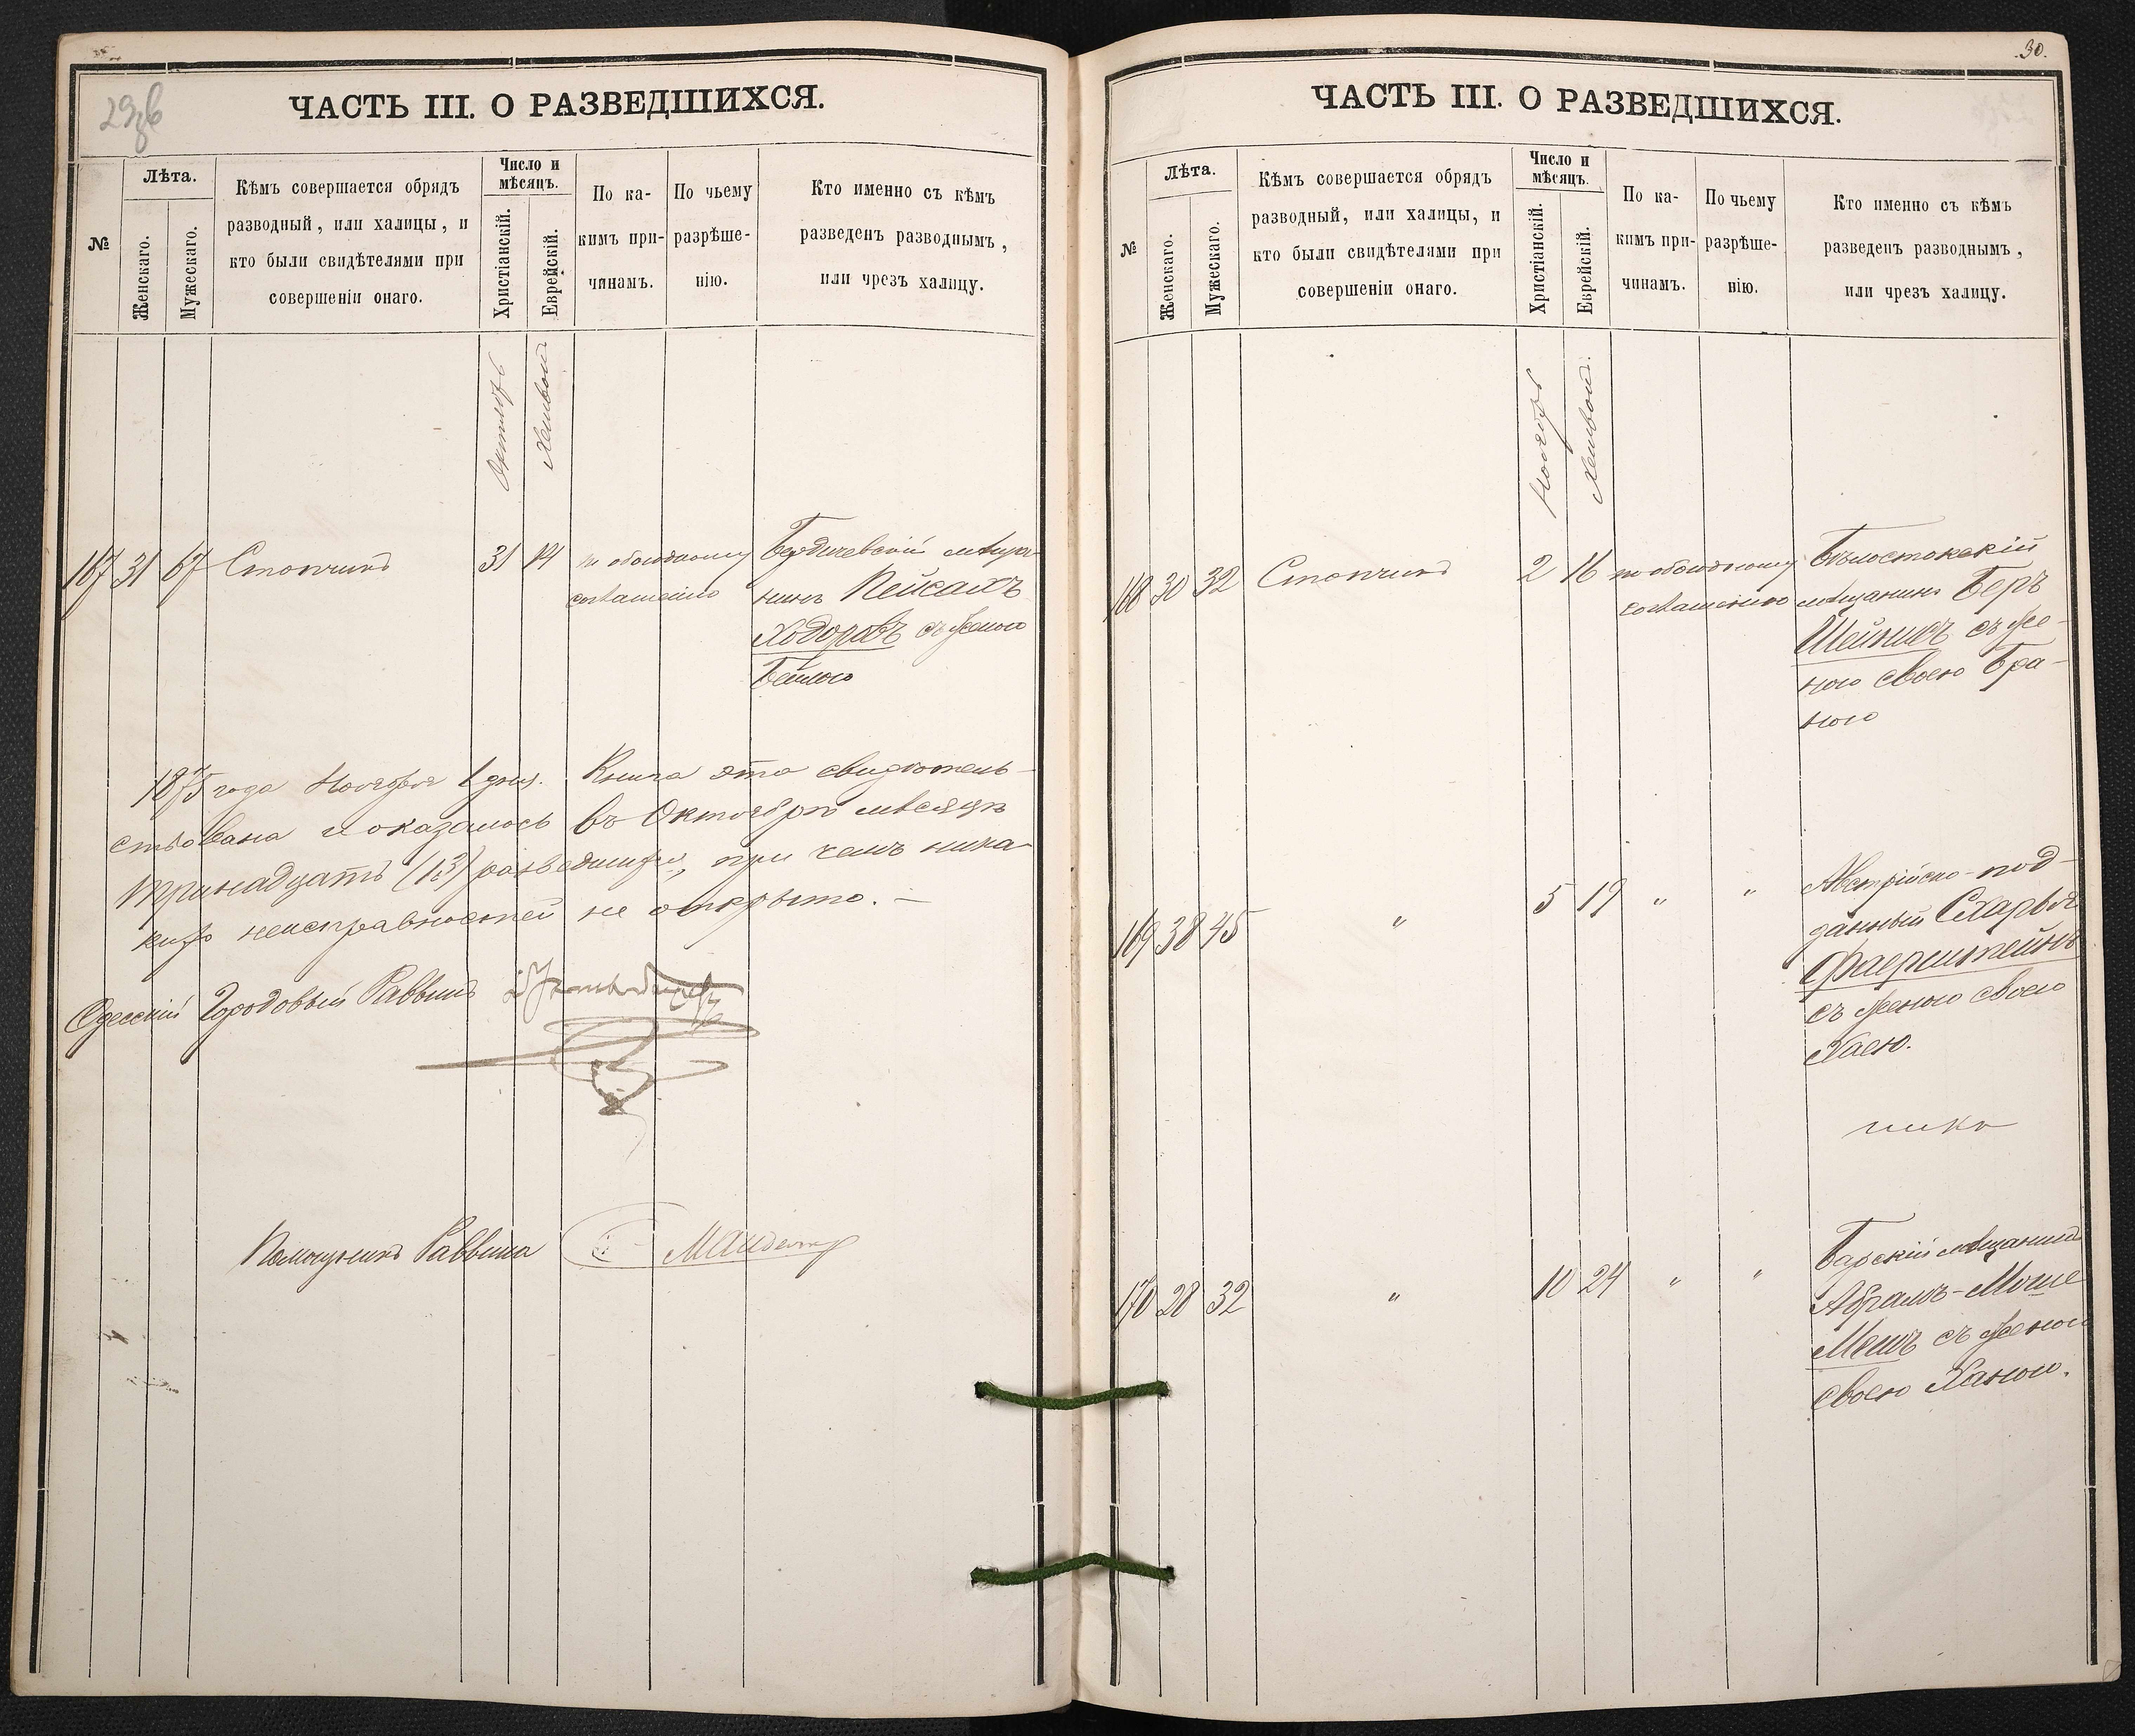 29зв
ЧАСТЬ III. О РАЗВЕДШИХСЯ.
№
Лѣта.
Женскаго.
Мужескаго.
Кѣмъ совершается обрядъ
разводный, или халицы, и
кто были свидѣтелями при
совершеніи онаго.
Число и
мѣсяцъ.
Христіанскій.
Еврейскій.
По ка-
кимъ при-
чинамъ.
По чьему
разрѣше-
нію.
Кто именно съ кѣмъ
разведенъ разводнымъ,
или чрезъ халицу.
Октябрь
Хешвой
167 31 67 Столчинъ 31 14 по обоюдному Бердичевскій мѣща-
согласію нинъ Пейсахъ
Ходоровъ съ женою
Бейлою
1875 года Ноября 1 дня. Книга эта свидѣтель-
ствована и оказалось въ Октябрѣ мѣсяцѣ
тринадцать (13) разведшихся, при чемъ ника-
кихъ неисправностей не открыто. —
Одесскій Городовый Раввинъ
Помощникъ Раввина
30.
ЧАСТЬ III. О РАЗВЕДШИХСЯ.
№
Лѣта.
Женскаго.
Мужескаго.
Кѣмъ совершается обрядъ
разводный, или халицы, и
кто были свидѣтелями при
совершеніи онаго.
Число и
мѣсяцъ.
Христіанскій.
Еврейскій.
По ка-
кимъ при-
чинамъ.
По чьему
разрѣше-
нію.
Кто именно съ кѣмъ
разведенъ разводнымъ,
или чрезъ халицу.
Ноябрь
Хешвой
168 30 32 Столчинъ 2 16 по обоюдному Бѣлостокскій
согласію мѣщанинъ Беръ
Шейнисъ съ же-
ною своею Бра-
ною
169 38 45 " 5 19 " " Австрійско-под-
данный Схарья
Фаерштейнъ
съ женою своею
Хаею.
170 28 32 " 10 24 " " Барскій мѣщанинъ
Абрамъ-Моше
Мешъ съ женою
своею Ханою.